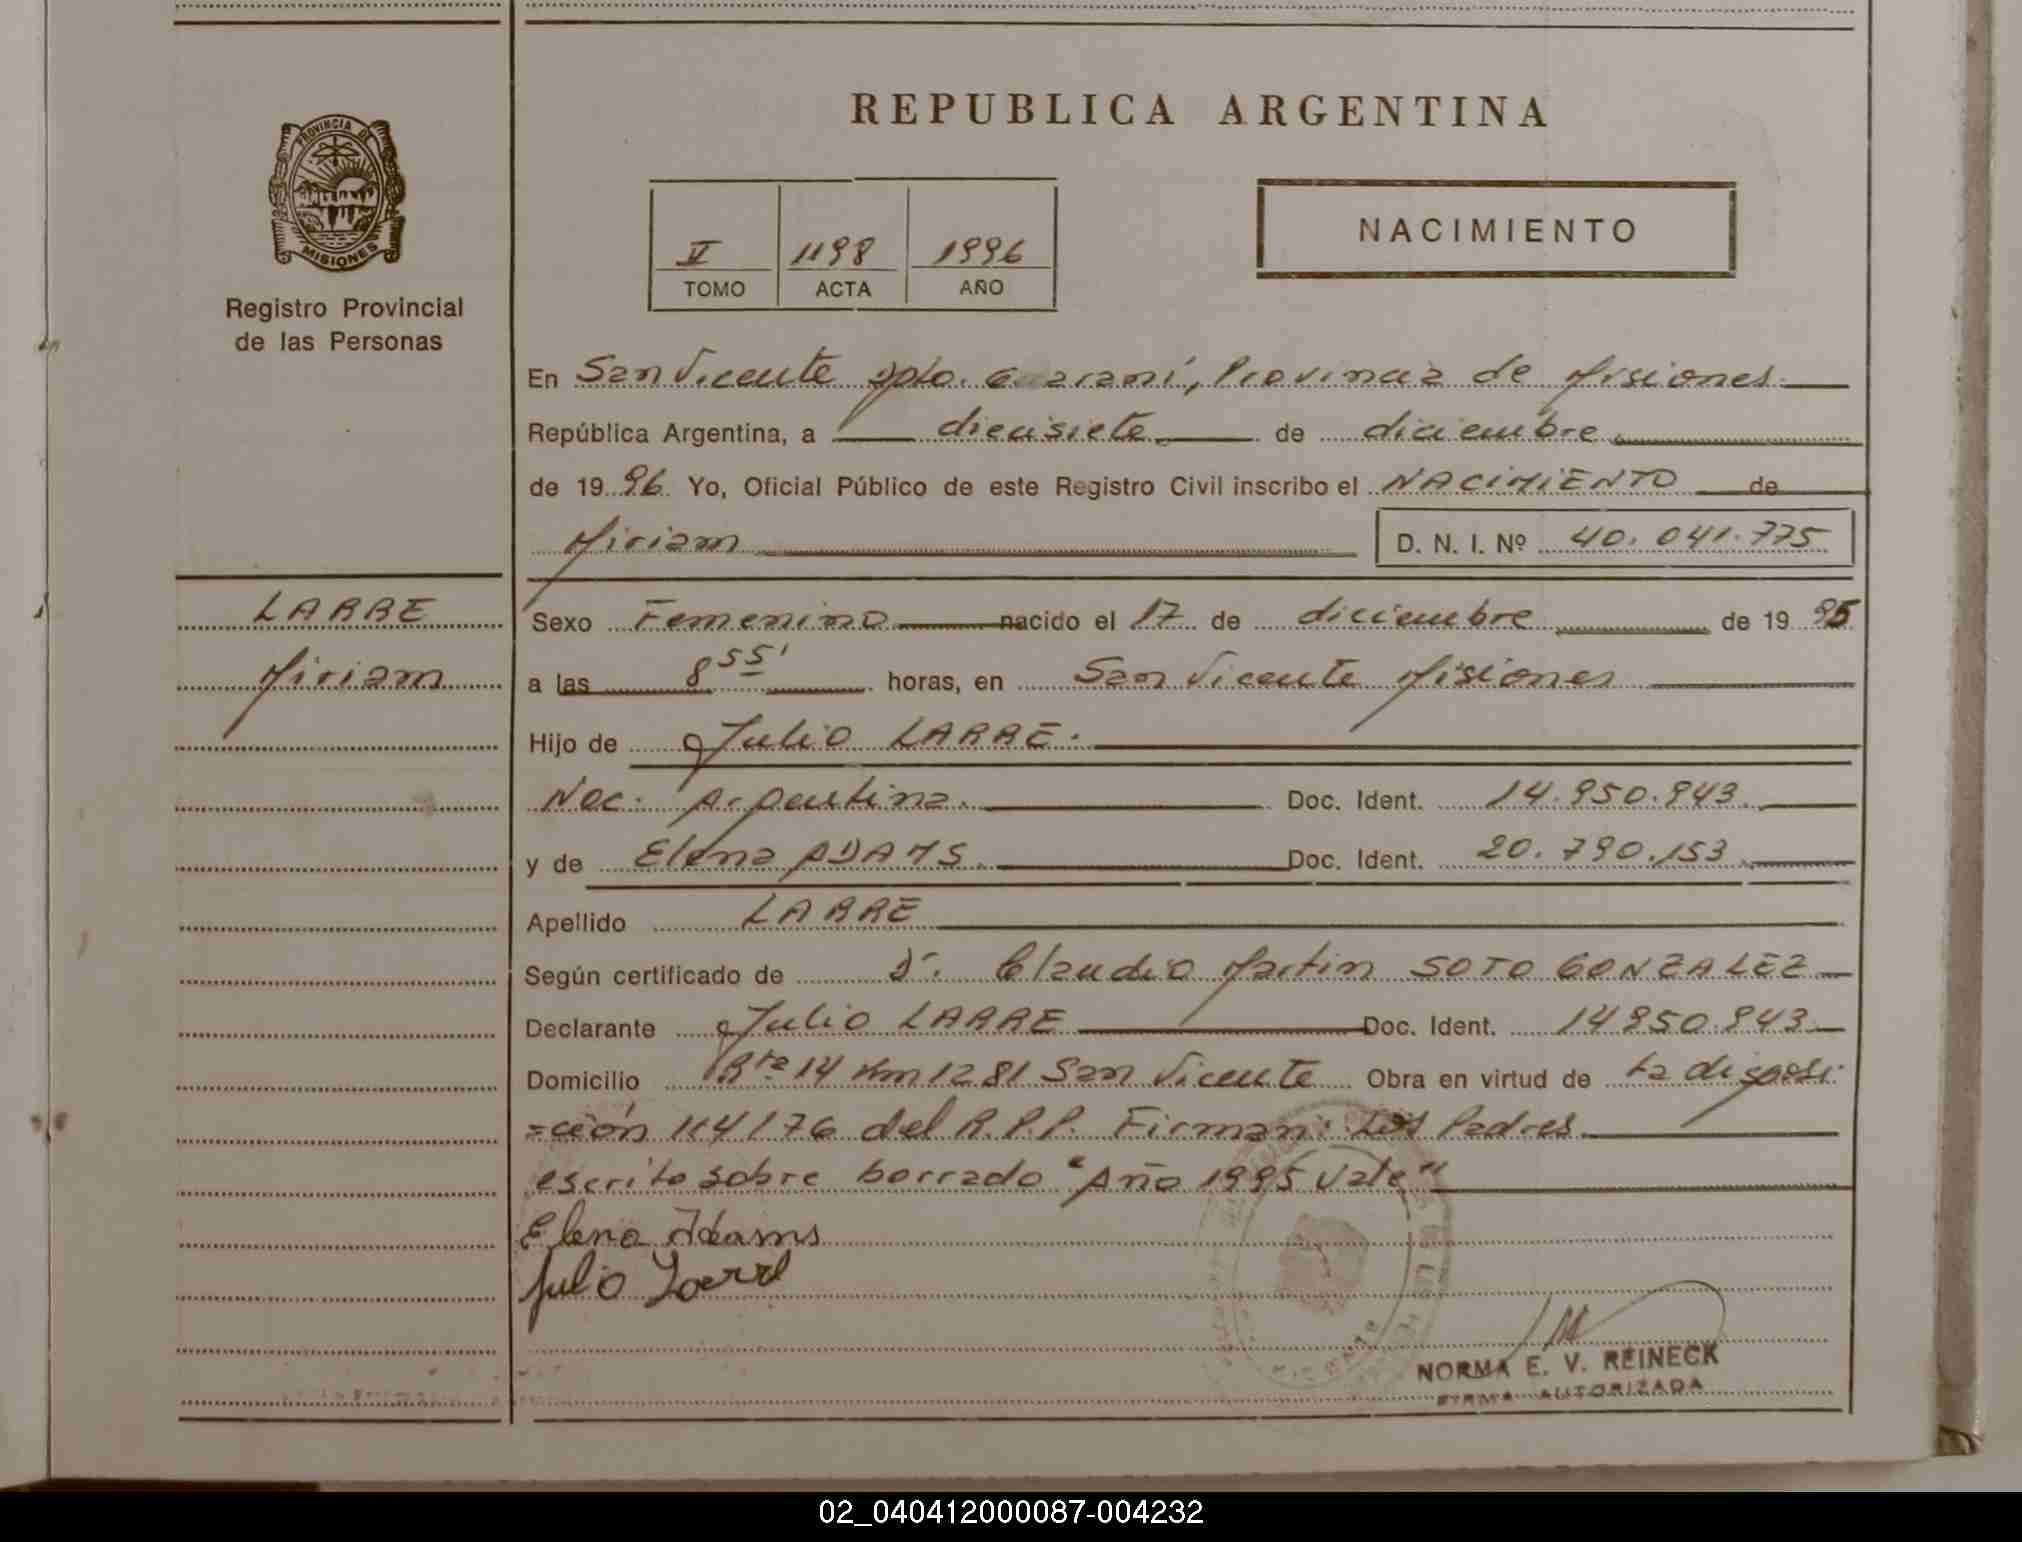 PROVINCIA DE
MISIONES
Registro Provincial
de las Personas
LARRE
Miriam
REPUBLICA ARGENTINA
NACIMIENTO
II 1198 1996
TOMO ACTA AÑO
En San Vicente Dpto. Guarani, Provincia de Misiones
República Argentina, a diecisiete de diciembre
de 1996 Yo, Oficial Público de este Registro Civil inscribo el NACIMIENTO de
Miriam D. N. I. Nº 40.041.775
Sexo Femenino nacido el 17 de diciembre de 1995
a las 8 55' horas, en San Vicente Misiones
Hijo de Julio LARRE.
Nac. Argentina. Doc. Ident. 14.950.943.
y de Elena ADAMS. Doc. Ident. 20.790.153
Apellido LARRE
Según certificado de Dr. Claudio Martin SOTO GONZALEZ
Declarante Julio LARRE Doc. Ident. 14950.943
Domicilio Rta 14 Km 1281 San Vicente Obra en virtud de La disposi
=ción 114/76 del R.P.P. Firman: Los Padres.
escrito sobre borrado "Año 1995 Vale"
Elena Adams
Julio Larre
NORMA E. V. REINECK
FIRMA AUTORIZADA
02_040412000087-004232